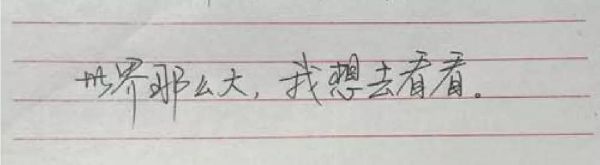 世界那么大，我想去看看。